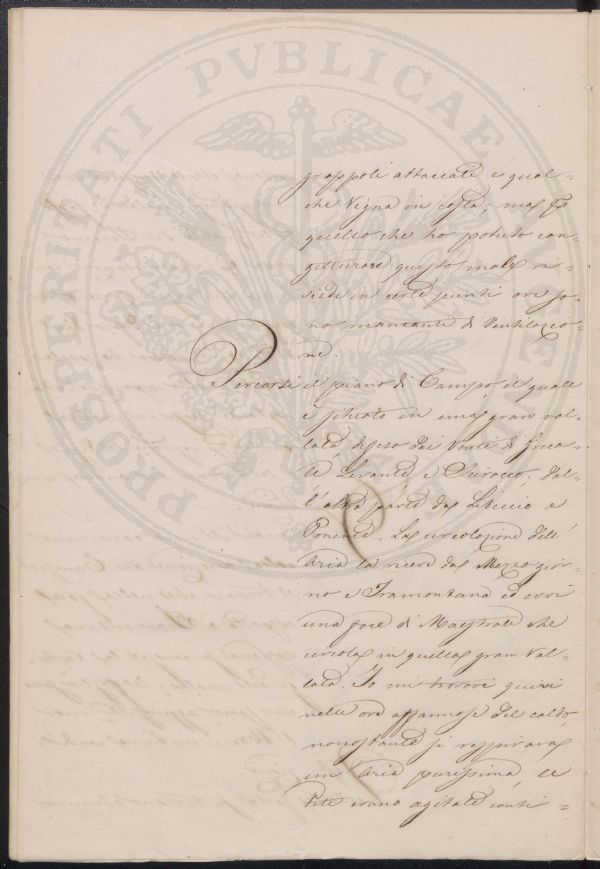 PROSPERITATI PVBLICAE
grappoli attaccati e qual=
che Vigna in costa; ma p
quello che ho potuto con=
getturare questo male ri=
siede in certi punti ove so=
no mancanti di Ventilazio=
ne.
Percorsi il piano di Campo il quale
è situato in una gran val=
lata difeso dai Venti di Greca=
le Levante e Scirocco, dal=
l'altra parte da Libeccio e
Ponente. La circolazione dell'
Aria la riceve da Mezzogior=
no e Tramontana ed evvi
una foce di Maestrale che
circola in quella gran Val=
lata. Io mi trovai quivi
nelle ore affannose del caldo,
nonostante si respirava
un Aria purissima, le
Viti erano agitate conti=